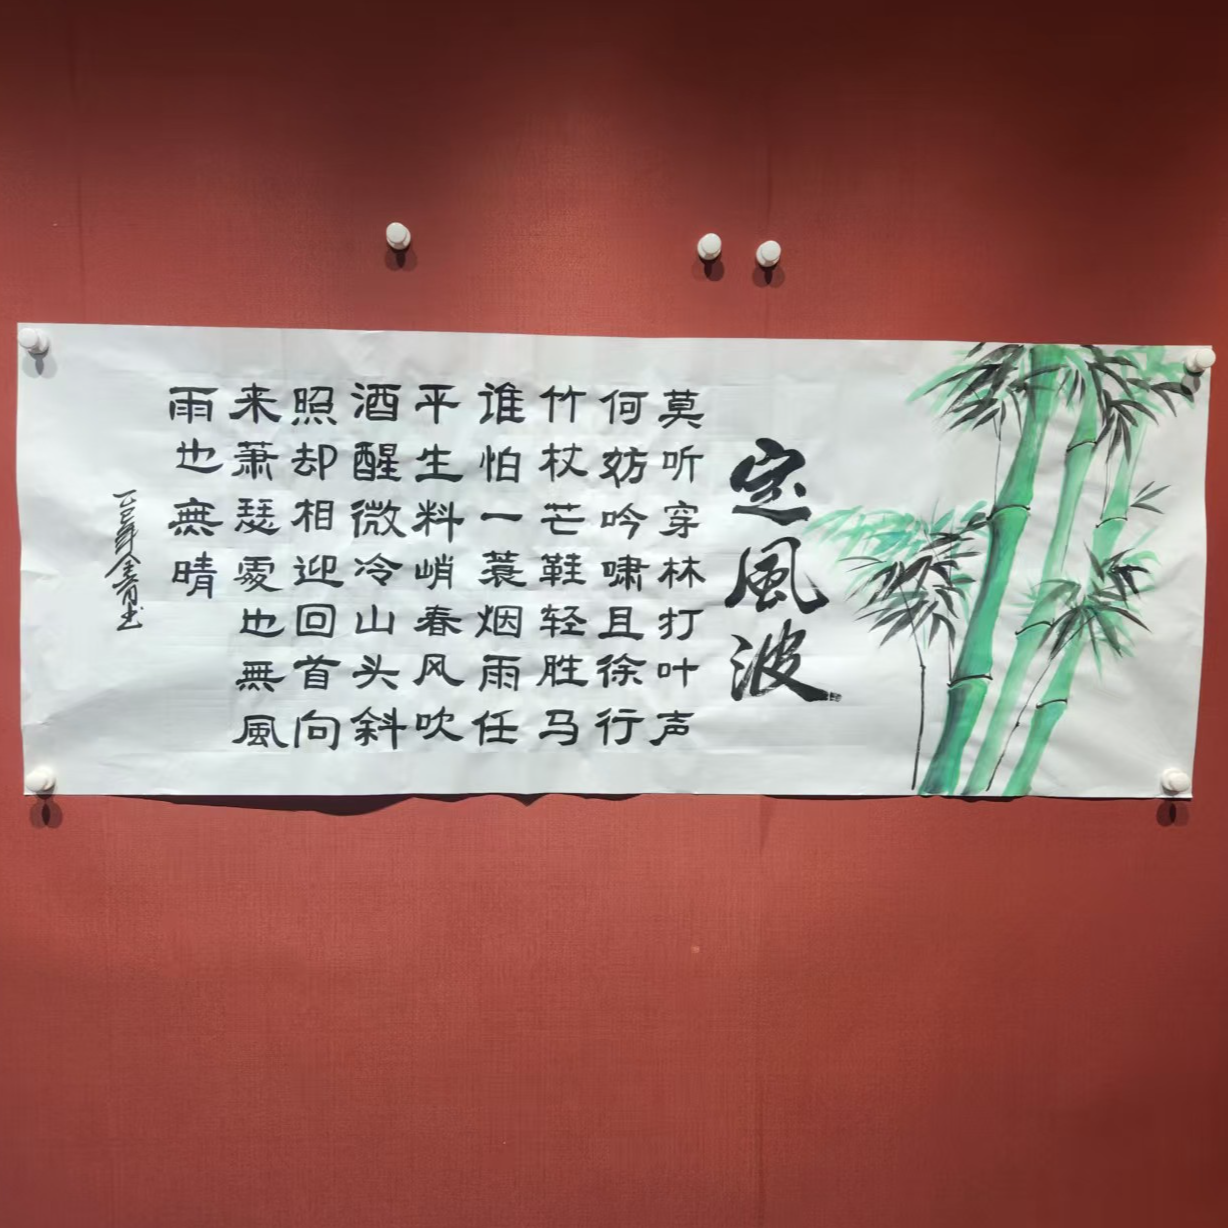 定風波
莫听穿林打叶声
何妨吟啸且徐行
竹杖芒鞋轻胜马
谁怕一蓑烟雨任
平生料峭春风吹
酒醒微冷山头斜
照却相迎回首向
来萧瑟處也無風
雨也無晴
乙巳年